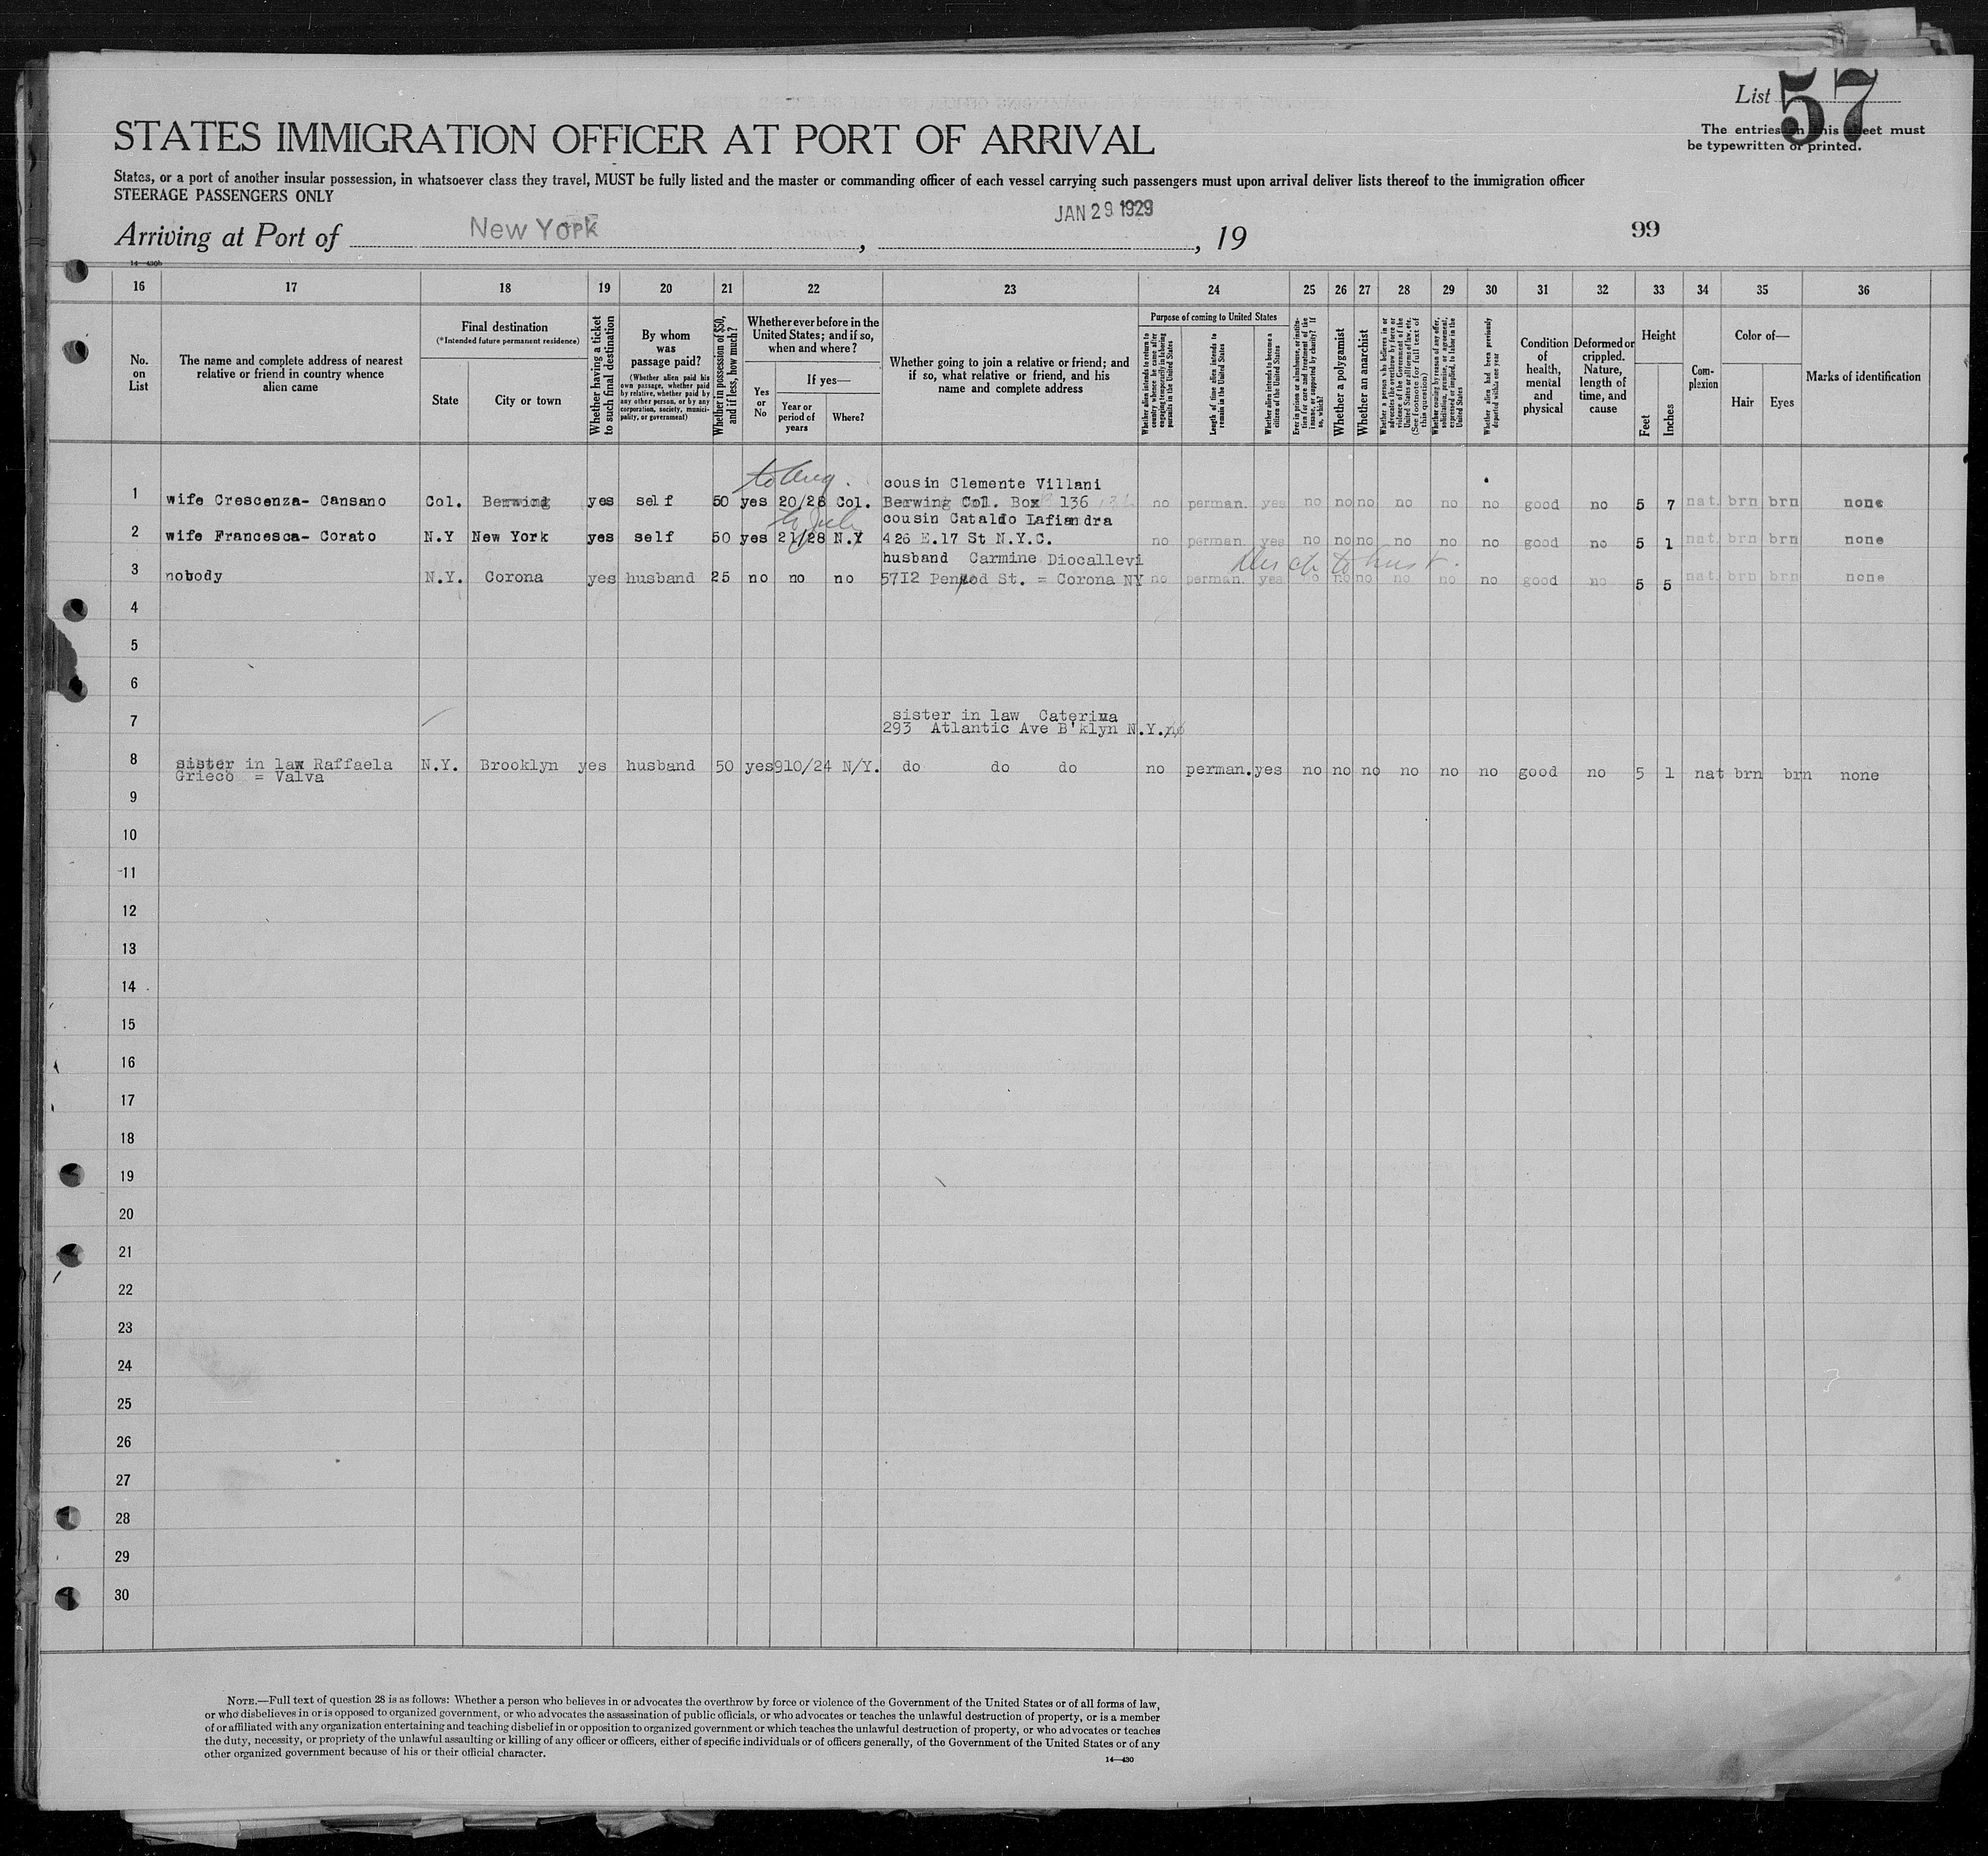 List 57
The entries on this sheet must
be typewritten or printed.
STATES IMMIGRATION OFFICER AT PORT OF ARRIVAL
States, or a port of another insular possession, in whatsoever class they travel, MUST be fully listed and the master or commanding officer of each vessel carrying such passengers must upon arrival deliver lists thereof to the immigration officer
STEERAGE PASSENGERS ONLY
Arriving at Port of New York, JAN 29 1929, 19
99
14—430b
16 17 18 19 20 21 22 23 24 25 26 27 28 29 30 31 32 33 34 35 36
No. on List
The name and complete address of nearest relative or friend in country whence alien came
Final destination
(*Intended future permanent residence)
State
City or town
Whether having a ticket to such final destination
By whom was passage paid?
(Whether alien paid his own passage, whether paid by relative, whether paid by any other person, or by any corporation, society, municipality, or government)
Whether in possession of $50, and if less, how much?
Whether ever before in the United States; and if so, when and where?
Yes or No
If yes—
Year or period of years
Where?
Whether going to join a relative or friend; and if so, what relative or friend, and his name and complete address
Purpose of coming to United States
Whether alien intends to return to country whence he came after engaging temporarily in laboring pursuits in the United States
Length of time alien intends to remain in the United States
Whether alien intends to become a citizen of the United States
Ever in prison or almshouse, or institution for care and treatment of the insane, or supported by charity? If so, which?
Whether a polygamist
Whether an anarchist
Whether a person who believes in or advocates the overthrow by force or violence of the Government of the United States or all forms of law, etc. (See footnote for full text of this question)
Whether coming by reason of any offer, solicitation, promise, or agreement, expressed or implied, to labor in the United States
Whether alien had been previously deported within one year
Condition of health, mental and physical
Deformed or crippled. Nature, length of time, and cause
Height
Feet
Inches
Complexion
Color of—
Hair
Eyes
Marks of identification
to Aug.
cousin Clemente Villani
1 wife Crescenza- Cansano Col. Berwind yes self 50 yes 20/28 Col. Berwing Col. Box 136 no perman. yes no no no no no no good no 5 7 nat. brn brn none
to July
cousin Cataldo Lafiandra
2 wife Francesca- Corato N.Y New York yes self 50 yes 21/28 N.Y 426 E.17 St N.Y.C. no perman. yes no no no no no no good no 5 1 nat. brn brn none
husband Carmine Diocallevi
3 nobody N.Y. Corona yes husband 25 no no no 5712 Penrod St. = Corona NY no perman. yes no no no no no no good no 5 5 nat. brn brn none
4
5
6
7 sister in law Caterina
293 Atlantic Ave B'klyn N.Y.
8 sister in law Raffaela N.Y. Brooklyn yes husband 50 yes 910/24 N/Y. do do do no perman. yes no no no no no no good no 5 1 nat brn brn none
Grieco = Valva
9
10
11
12
13
14
15
16
17
18
19
20
21
22
23
24
25
26
27
28
29
30
NOTE.—Full text of question 28 is as follows: Whether a person who believes in or advocates the overthrow by force or violence of the Government of the United States or of all forms of law,
or who disbelieves in or is opposed to organized government, or who advocates the assassination of public officials, or who advocates or teaches the unlawful destruction of property, or is a member
of or affiliated with any organization entertaining and teaching disbelief in or opposition to organized government or which teaches the unlawful destruction of property, or who advocates or teaches
the duty, necessity, or propriety of the unlawful assaulting or killing of any officer or officers, either of specific individuals or of officers generally, of the Government of the United States or of any
other organized government because of his or their official character.
14—430